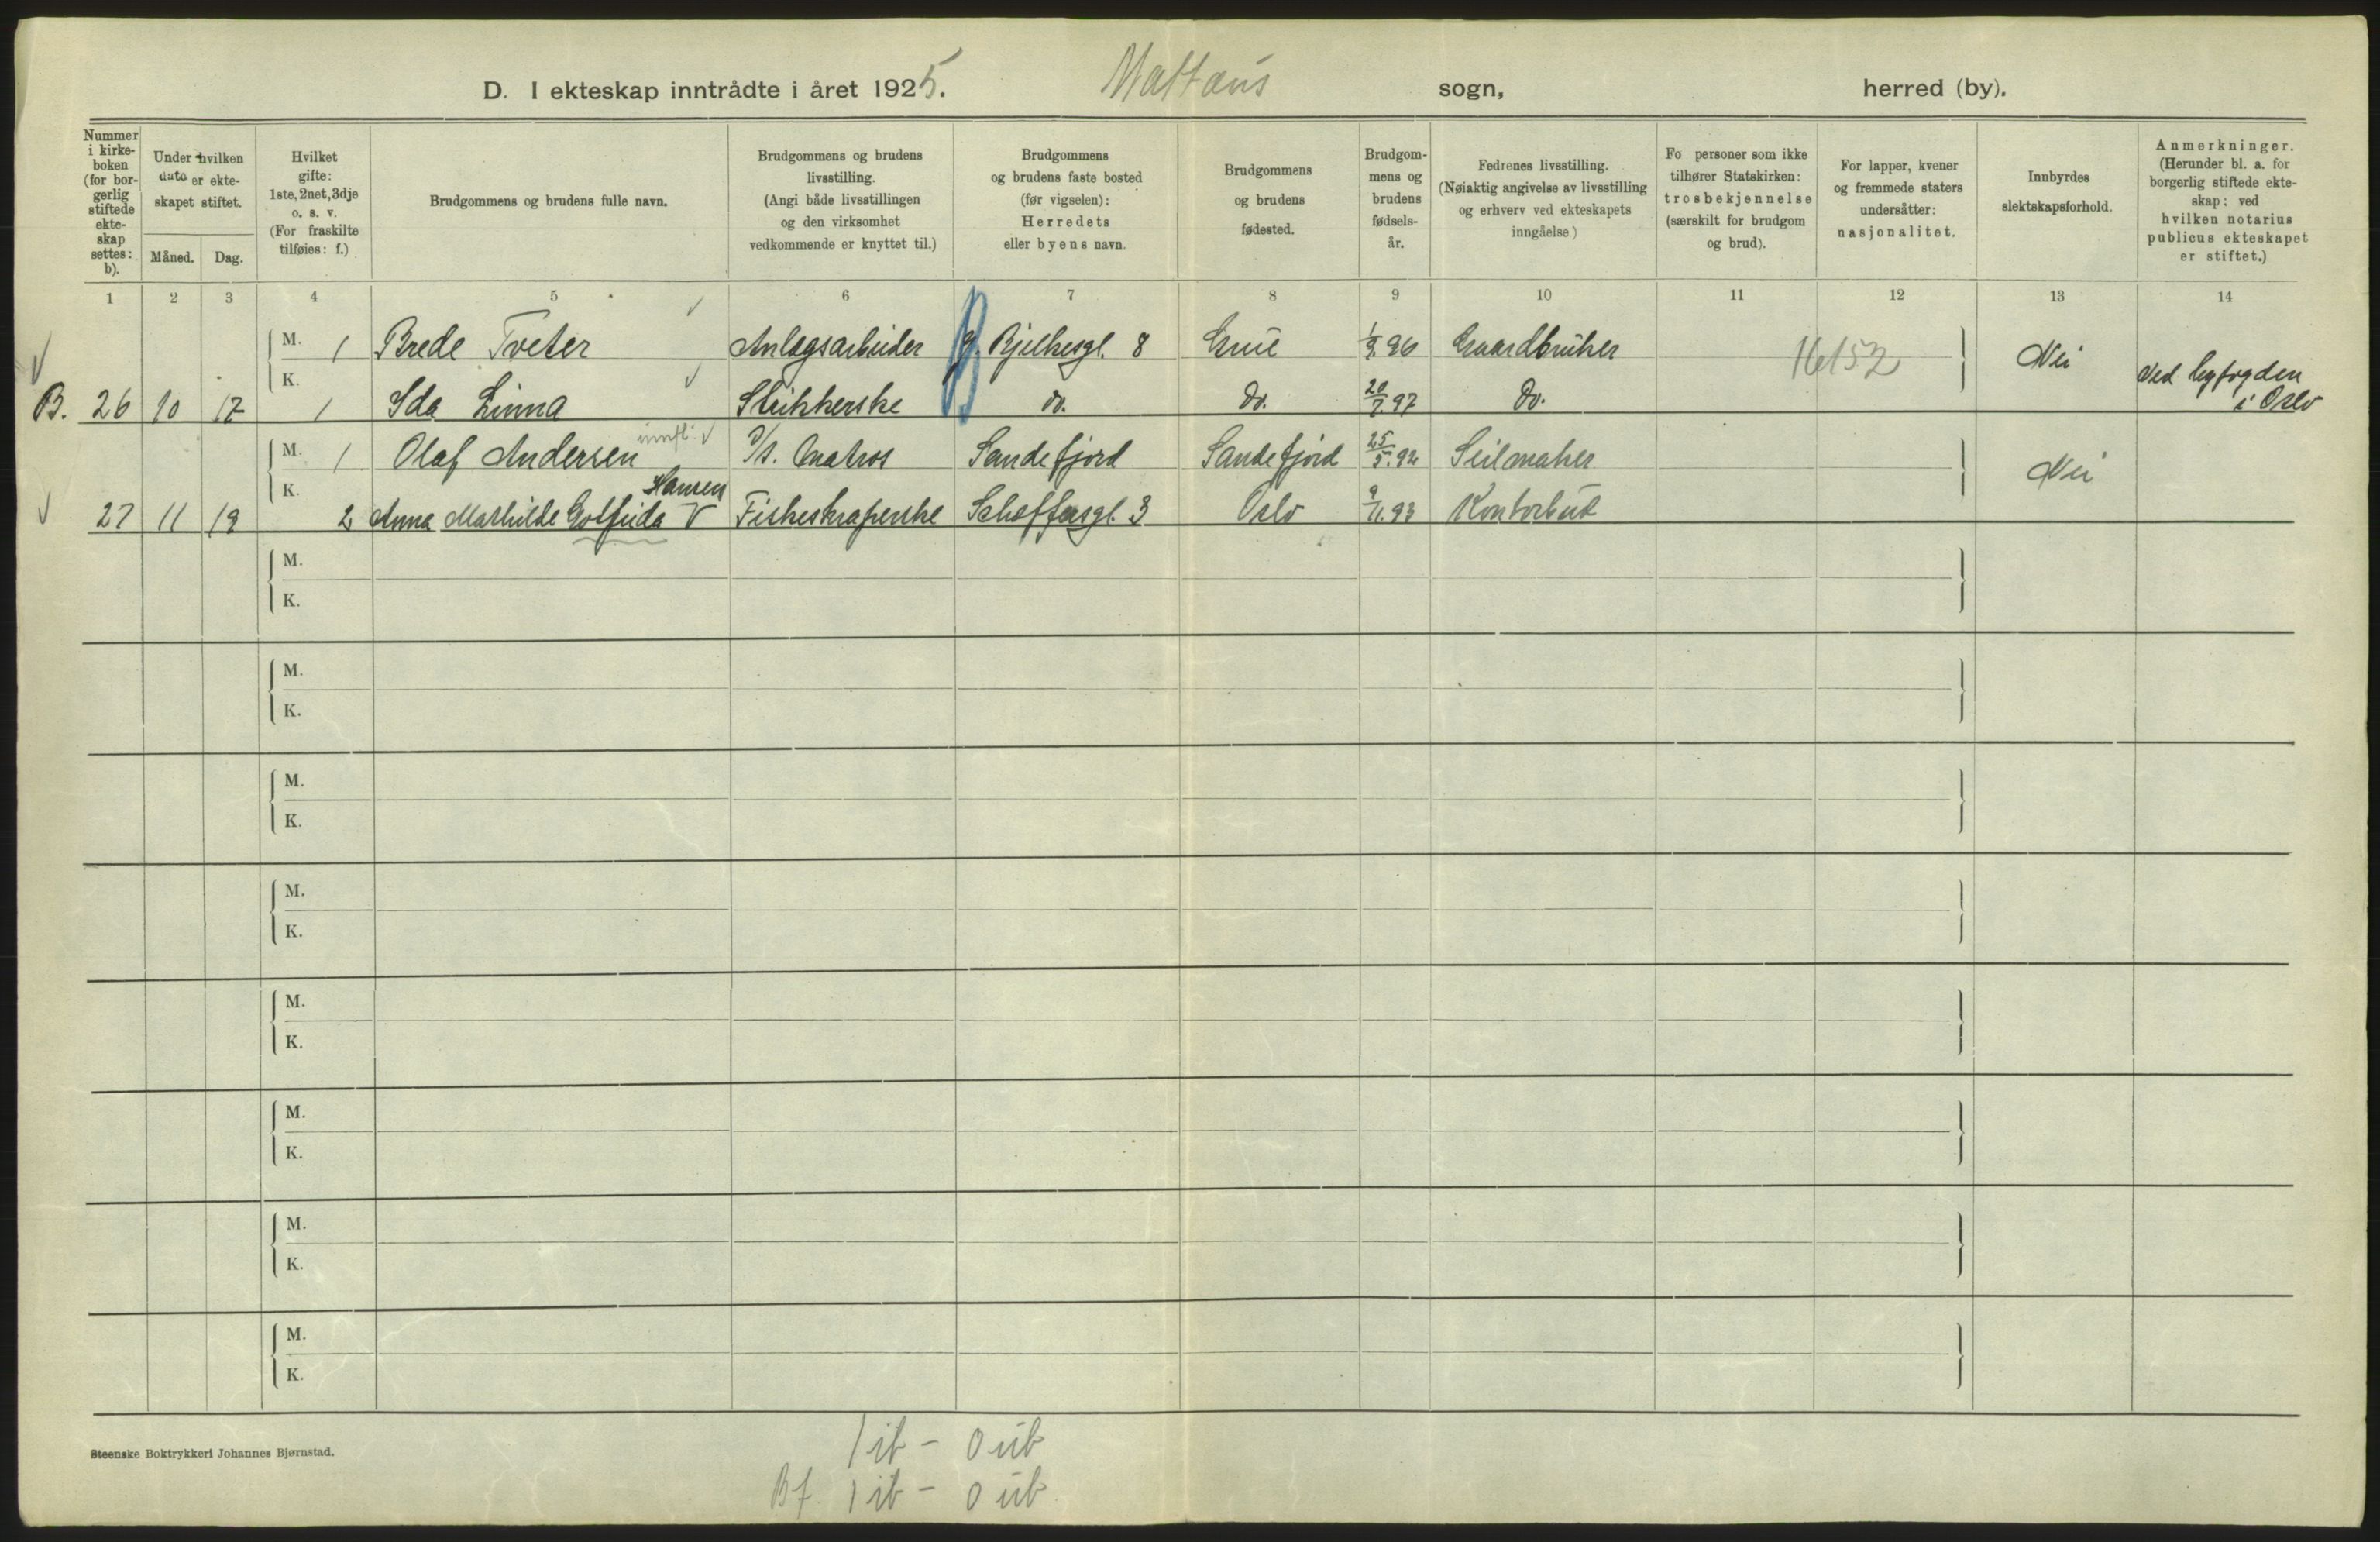 D. I ekteskap inntrådte i året 1925. Mattæus sogn, herred (by).
Nummer i kirkeboken (for borgerlig stiftede ekteskap settes: b).
Under hvilken dato er ekteskapet stiftet.
Måned. Dag.
Hvilket gifte: 1ste, 2net, 3dje o. s. v. (For fraskilte tilføies: f.)
Brudgommens og brudens fulle navn.
Brudgommens og brudens livsstilling. (Angi både livsstillingen og den virksomhet vedkommende er knyttet til.)
Brudgommens og brudens faste bosted (før vigselen): Herredets eller byens navn.
Brudgommens og brudens fødested.
Brudgommens og brudens fødselsår.
Fedrenes livsstilling. (Nøiaktig angivelse av livsstilling og erhverv ved ekteskapets inngåelse)
Fo personer som ikke tilhører Statskirken: trosbekjennelse (særskilt for brudgom og brud).
For lapper, kvener og fremmede staters undersåtter: nasjonalitet.
Innbyrdes slektskapsforhold.
Anmerkninger. (Herunder bl. a. for borgerlig stiftede ekteskap: ved hvilken notarius publicus ekteskapet er stiftet.)
1 2 3 4 5 6 7 8 9 10 11 12 13 14
M. 1 Brede Tveter Anlægsarbeider J. Bjelkesgt. 8 Grue 1/9.96 Gaardbruker 16152 Nei Ved byfogden i Oslo
B. 26 10 17 K. 1 Ida Linna Strikkerske do. do. 20/7.97 do.
M. 1 Olaf Andersen innfl. Matros Sandefjord Sandefjord 25/5.92 Seilmaker Nei
27 11 19 K. 2 Anna Mathilde Golfrida Hansen Fiskeskraperske Scheffersgt. 3 Oslo 9/11.93 Kontorbud
M.
K.
M.
K.
M.
K.
M.
K.
M.
K.
M.
K.
M.
K.
M.
K.
Steenske Boktrykkeri Johannes Bjørnstad.
1 ib - 0 ub
Bf. 1 ib - 0 ub